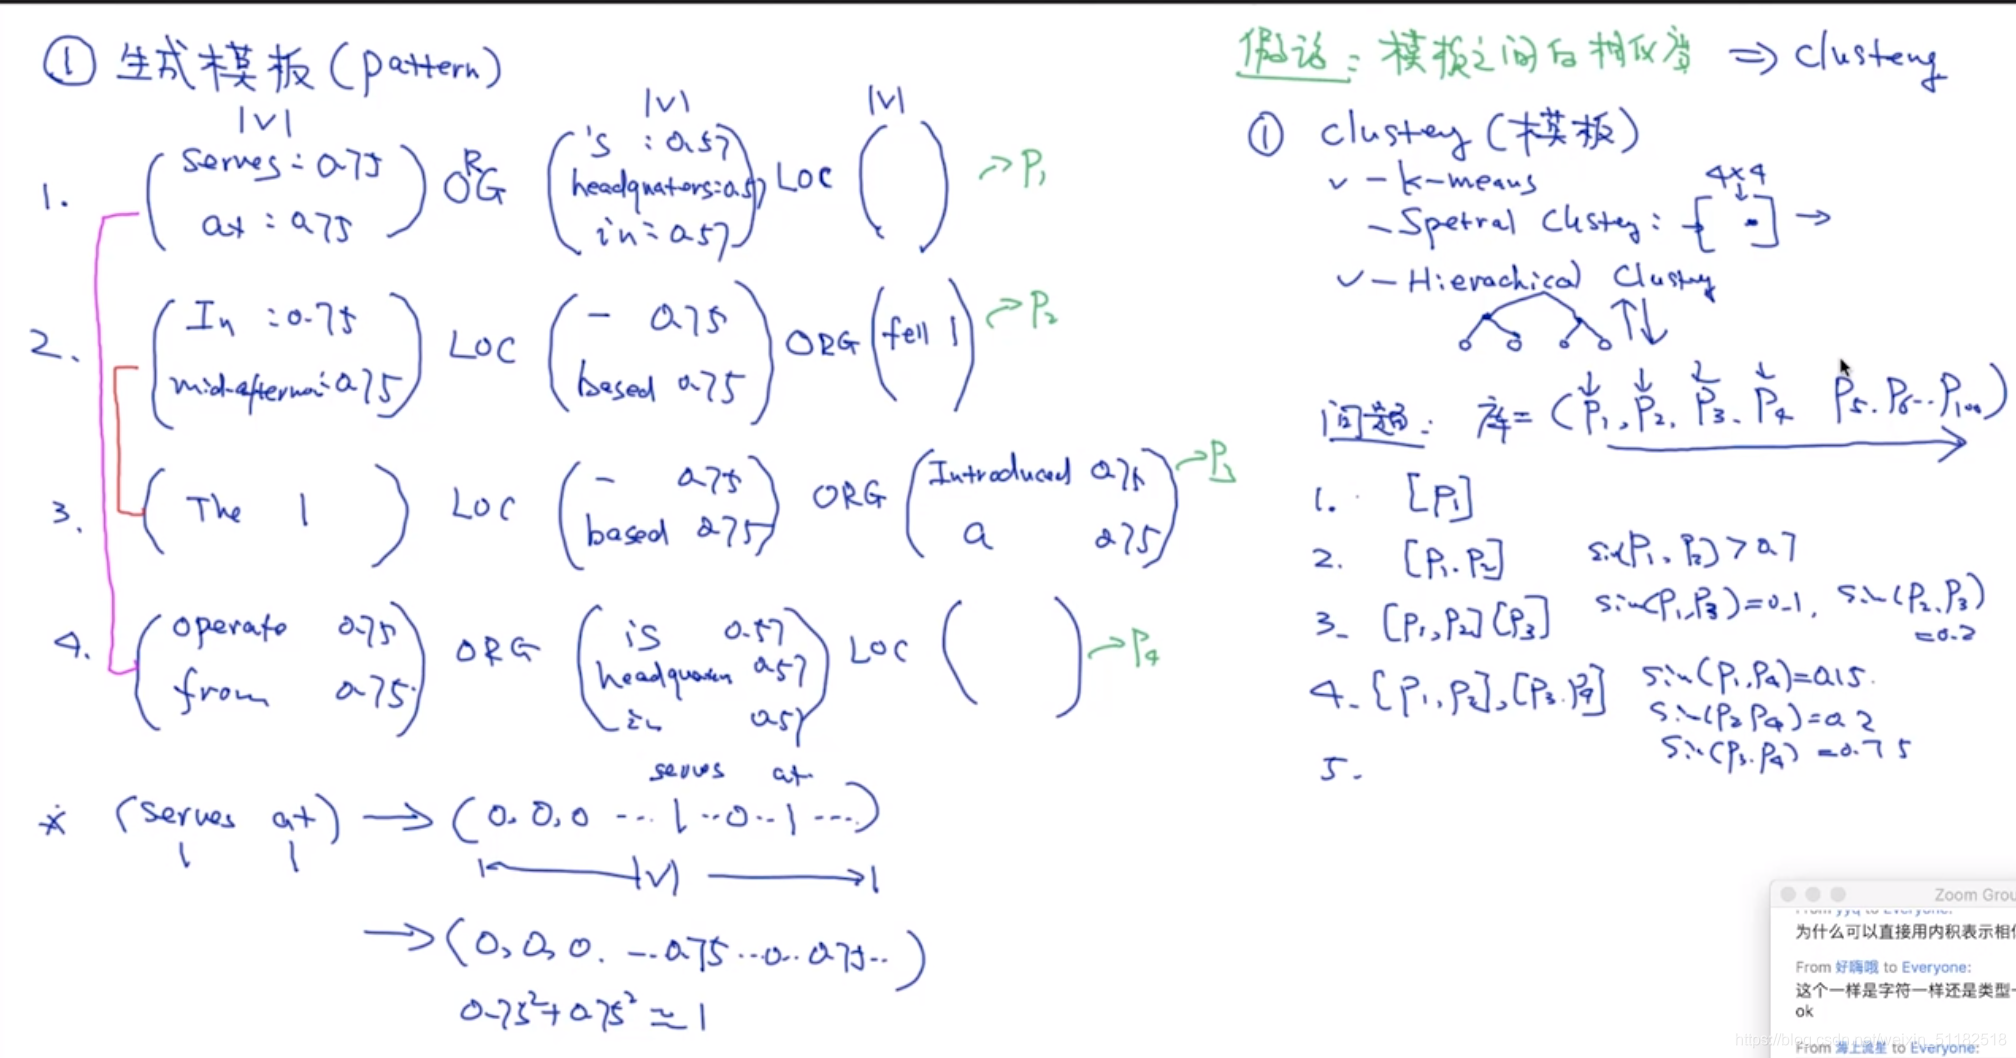 ① 生成模板 (pattern)
|V| |V| |V|
1. (serves : 0.75 at : 0.75) ORG (is : 0.57 headquaters : 0.57 in : 0.57) LOC ( ) → P1
2. (In : 0.75 mid-afternon : 0.75) LOC (- 0.75 based 0.75) ORG (fell 1) → P2
3. (The 1) LOC (- 0.75 based 0.75) ORG (Introduced 0.75 a 0.75) → P3
4. (operate 0.75 from 0.75) ORG (is 0.57 headquaters 0.57 in 0.57) LOC ( ) → P4
serves at
* (serves at) → (0, 0, 0 ... 1 ..0.. 1 ....)
1 1
|V|
→ (0, 0, 0. ... 0.75 ...0.. 0.75.. )
0.75²+0.75² ≈ 1
假设: 模板之间有相似度 ⇒ clusteng
① clusteg (模板)
✓ - k-means
4x4
- Spetral Clusteg : [ ] →
✓ - Hierachical Clusteg
问题: 库 = (P1, P2, P3, P4 P5. P6... P100)
1. [P1]
2. [P1. P2] sim(P1, P2) > 0.7
3. [P1, P2] [P3] sim(P1, P3)=0.1, sim(P2, P3) =0.2
4. [P1, P2], [P3. P4] sim(P1, P4)=0.15.
sim(P2 P4)=0.2
sim(P3. P4) =0.75
5.
Zoom Grou
From yyq to Everyone:
为什么可以直接用内积表示相
From 好嗨哦 to Everyone:
这个一样是字符一样还是类型
ok
From 海上流星 to Everyone:
https://blog.csdn.net/weixin_51182518